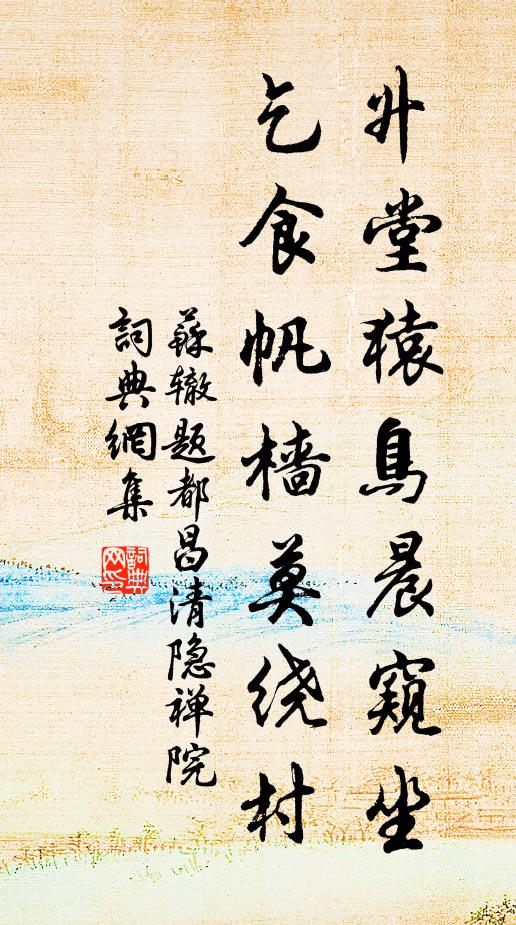 升堂猿鳥晨窺坐
乞食帆檣莫绕村
蘇辙题都昌清隐禅院
詞典網集
詞典网印